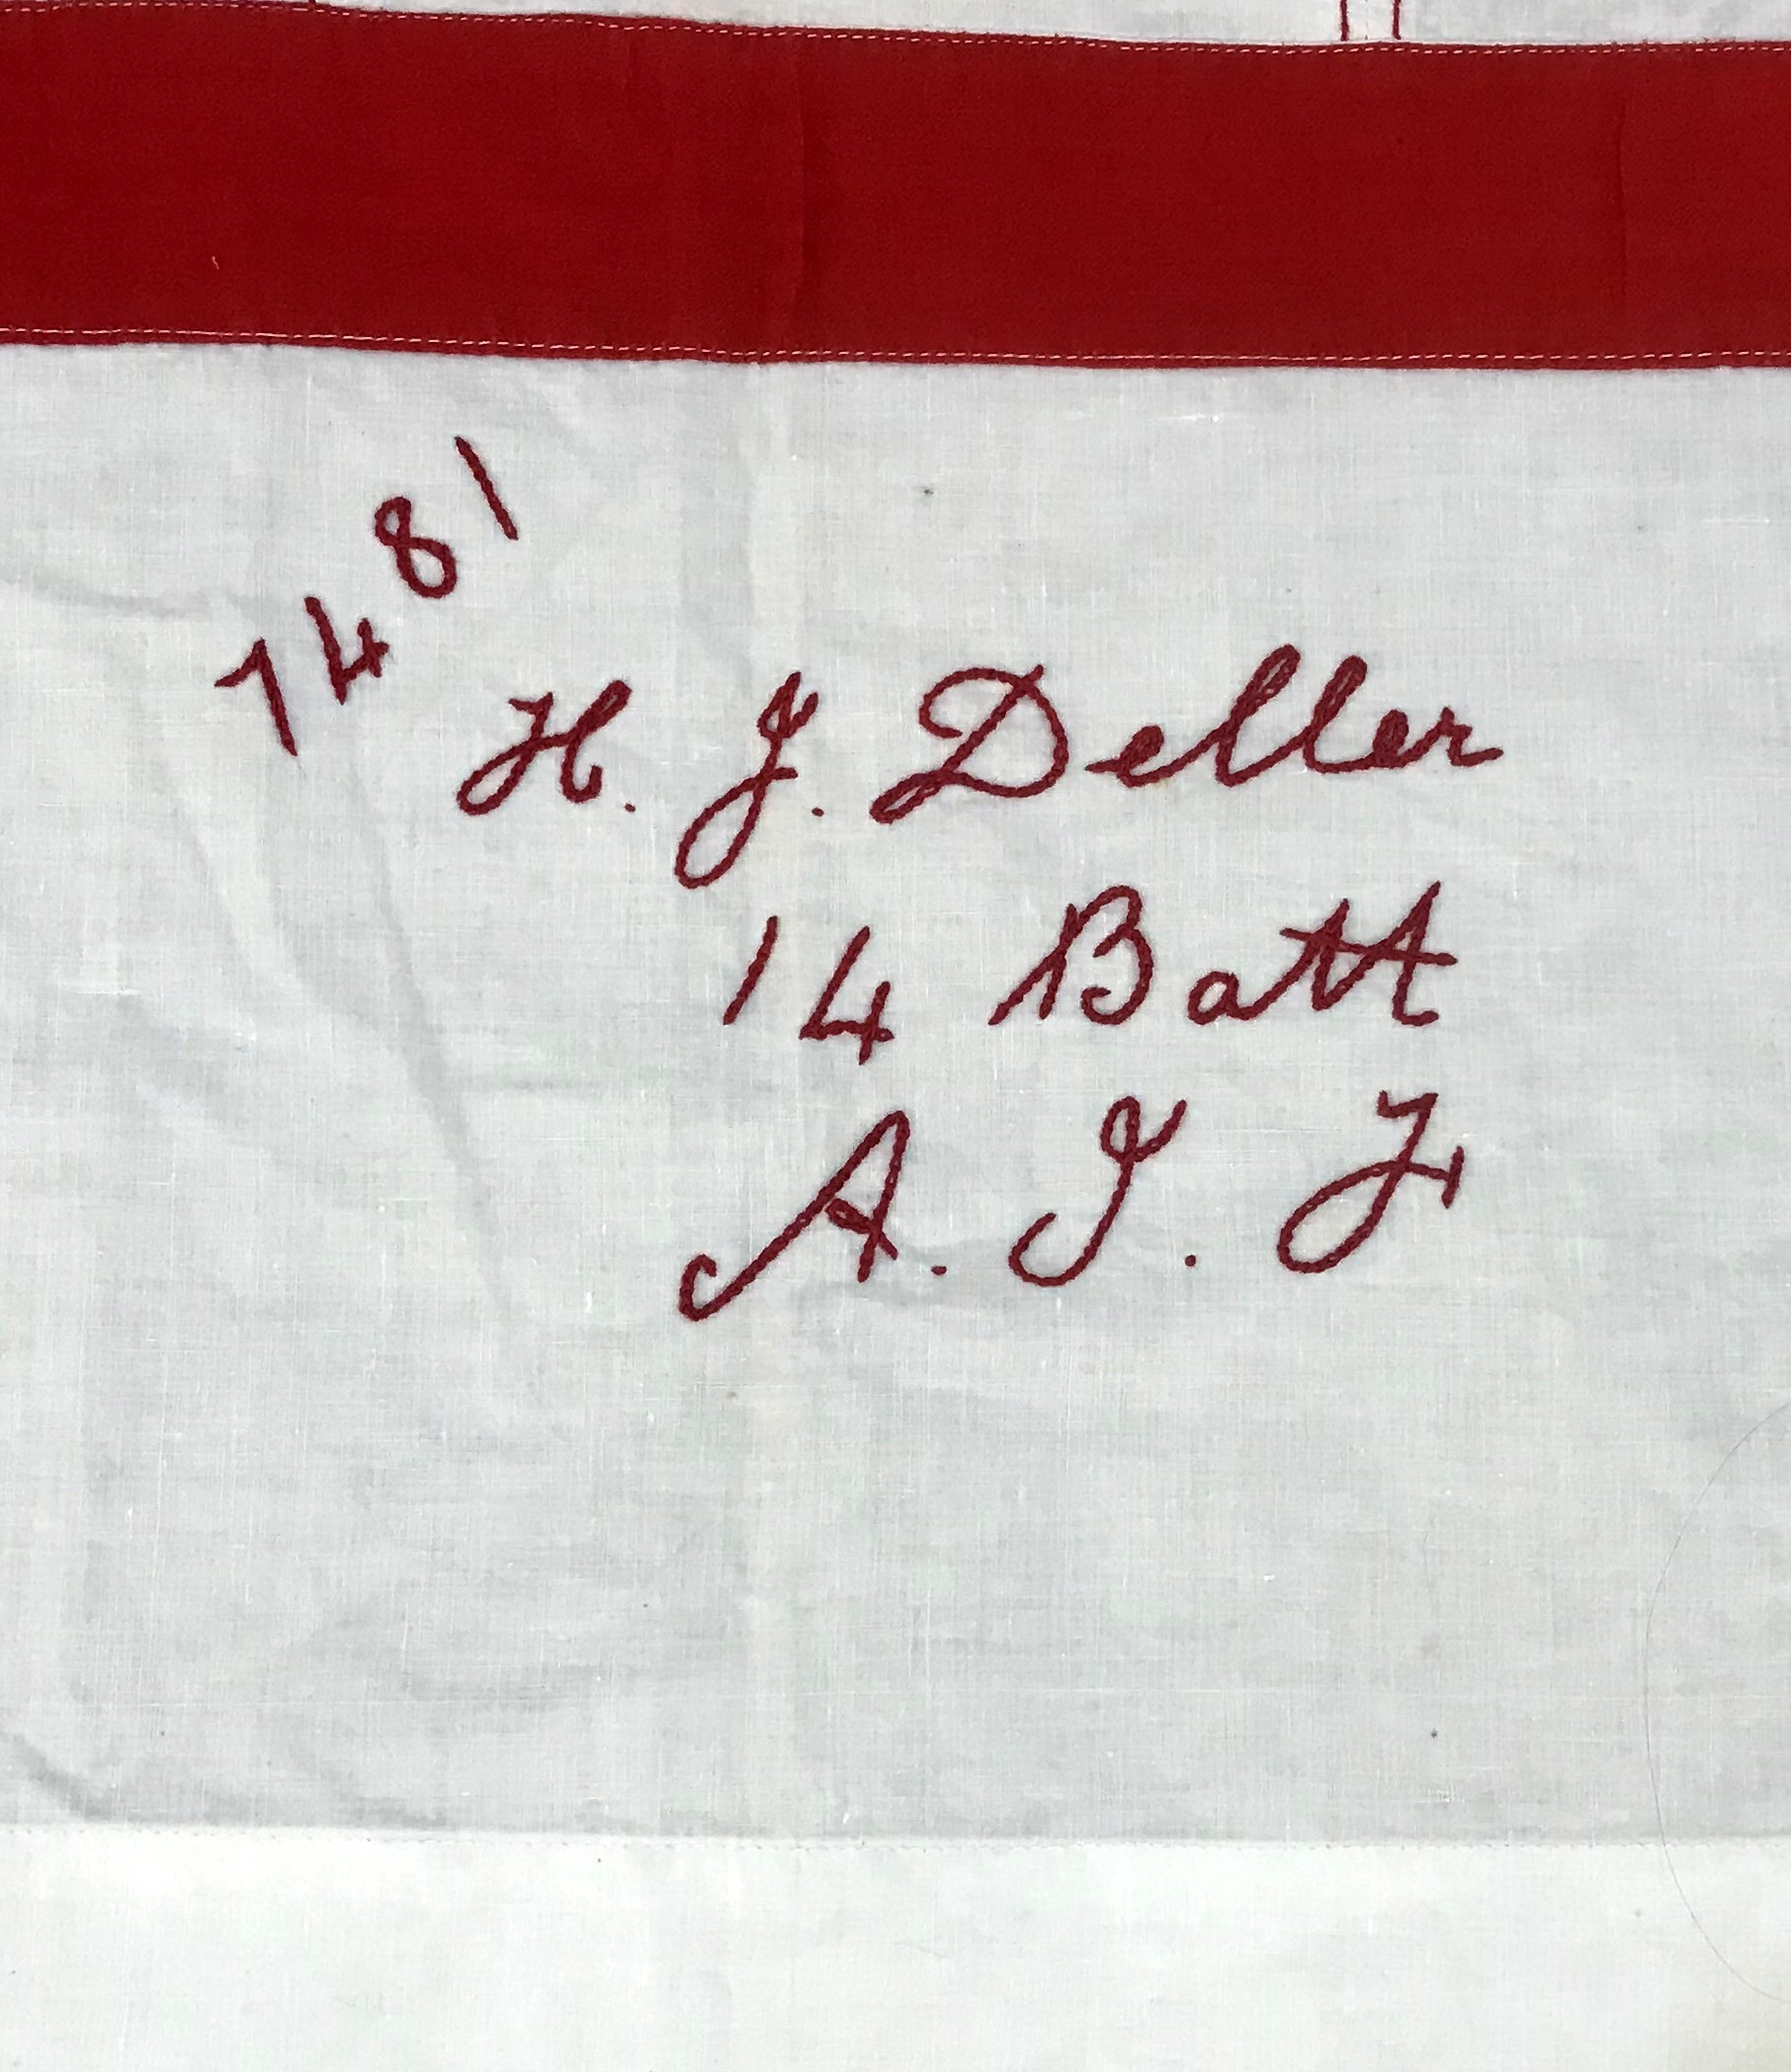 7481
H. J. Deller
14 Batt
A. I. F